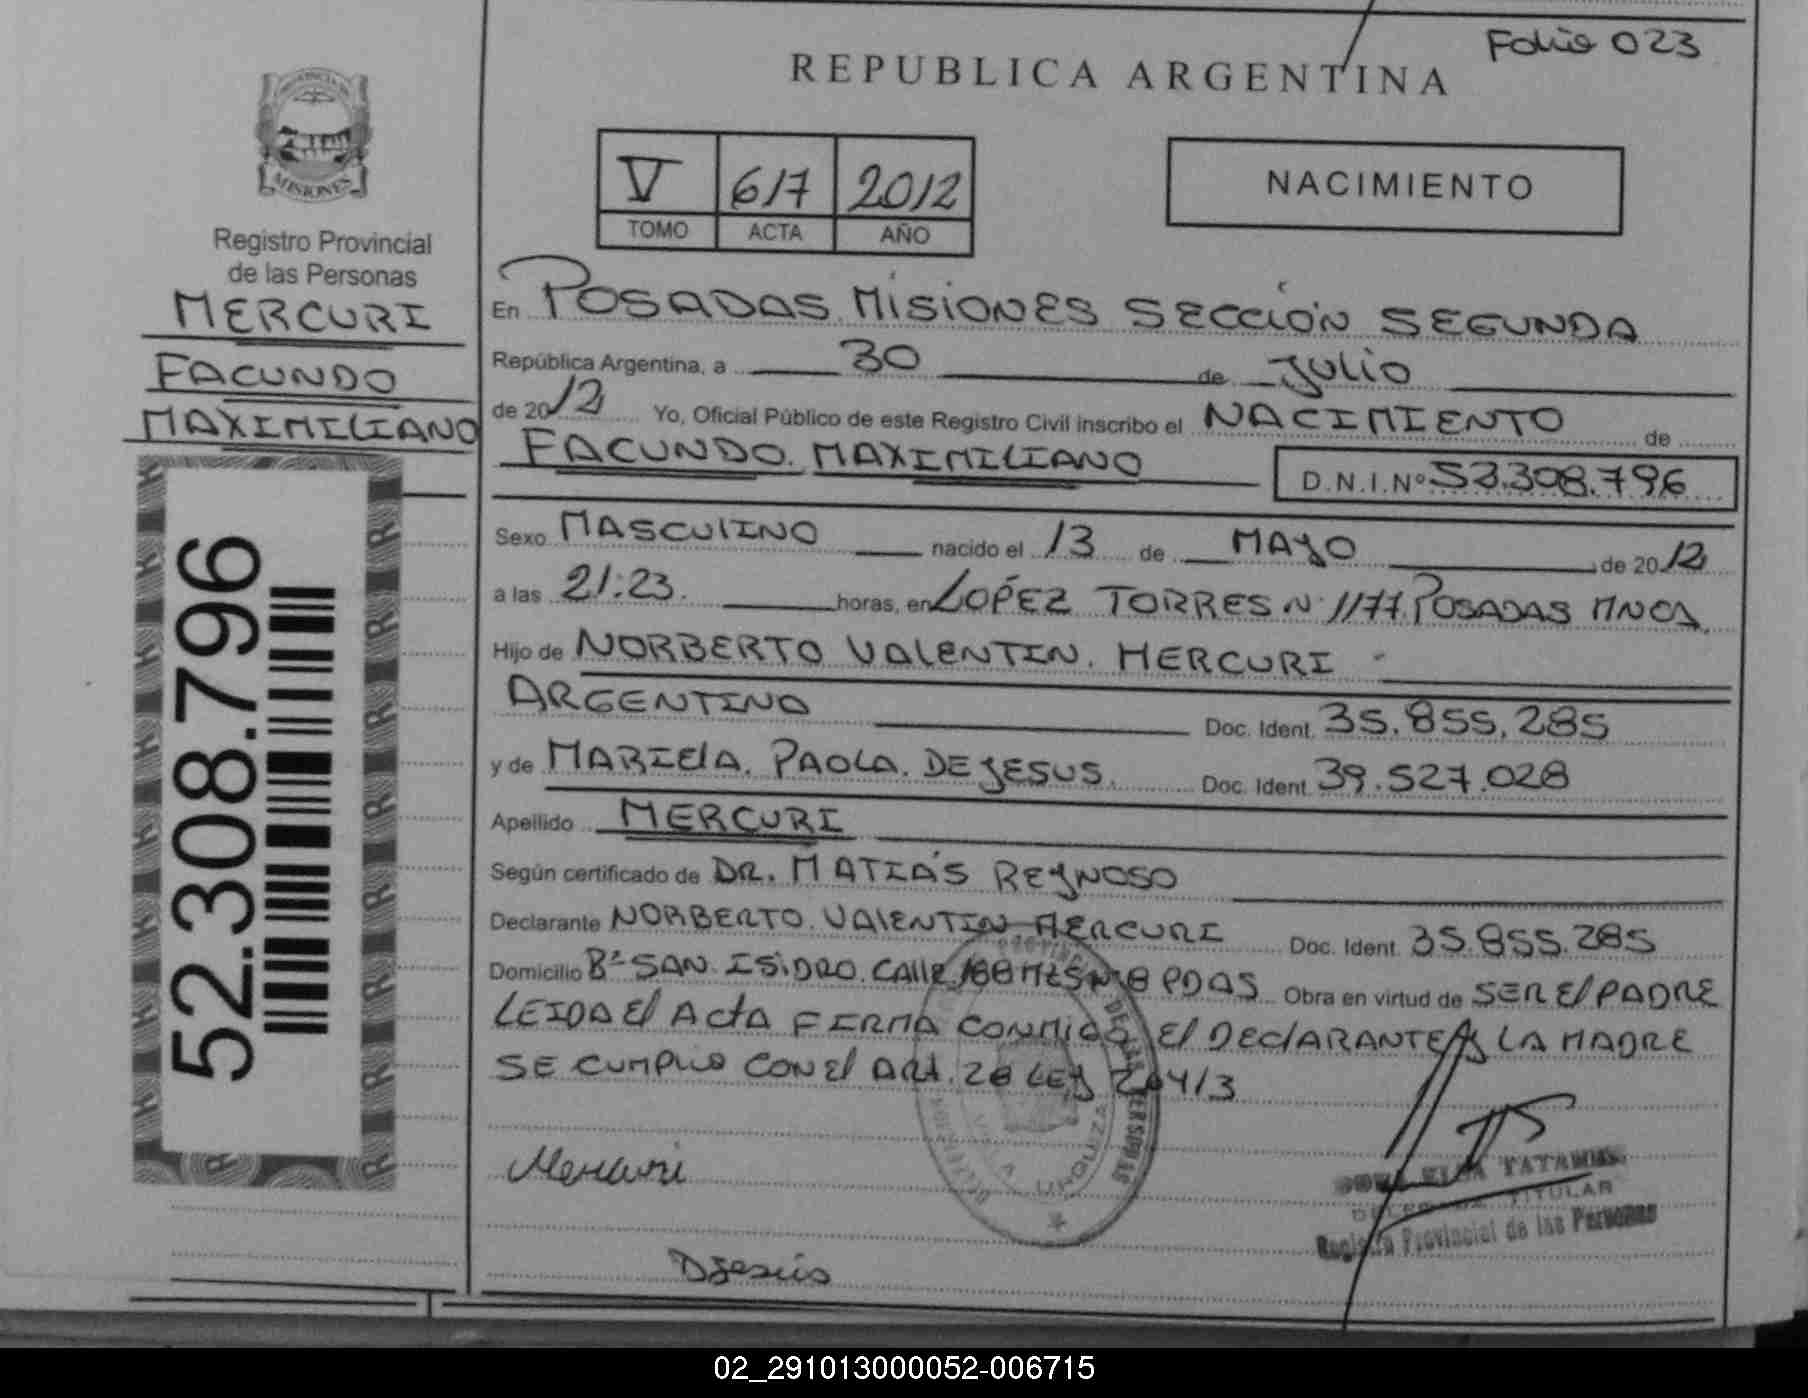 Folio 023
REPUBLICA ARGENTINA
PROVINCIA DE
MISIONES
Registro Provincial
de las Personas
MERCURI
FACUNDO
MAXIMILIANO
52.308.796
V 617 2012
TOMO ACTA AÑO
NACIMIENTO
En POSADAS. MISIONES SECCIÓN SEGUNDA
República Argentina, a 30 de Julio
de 2012 Yo, Oficial Público de este Registro Civil inscribo el NACIMIENTO de
FACUNDO. MAXIMILIANO D.N.I.Nº 52.308.796
Sexo MASCULINO nacido el 13 de MAYO de 2012
a las 21:23. horas, en LOPÉZ TORRES N 1177. POSADAS MNES.
Hijo de NORBERTO VALENTIN. MERCURI
ARGENTINO Doc. Ident. 35.855.285
y de MARIELA. PAOLA. DE JESUS. Doc. Ident. 39.527.028
Apellido MERCURI
Según certificado de DR. MATIÁS REYNOSO
Declarante NORBERTO. VALENTIN MERCURI Doc. Ident. 35.855.285
Domicilio Bº SAN. ISIDRO. CALLE 188 N 8 PDAS Obra en virtud de SER EL PADRE
LEIDA El ACTA FIRMA CONMIGO El DECLARANTE y LA MADRE
SE CUMPLIO CON El ART. 28 LEY 20413
Mercuri
DJesús
TITULAR
Registro Provincial de las Personas
02_291013000052-006715